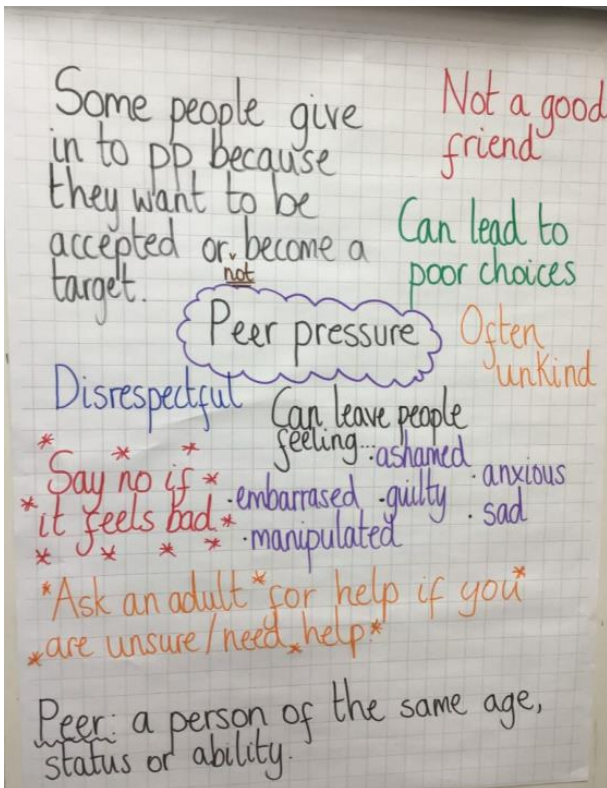 Some people give
in to pp because
they want to be
accepted or become a
not
target.
Not a good
friend
Can lead to
poor choices
Peer pressure
Often
unkind
Disrespectful
Can leave people
feeling...
·ashamed
·anxious
·embarrased ·guilty
·sad
·manipulated
Say no if
it feels bad.
*Ask an adult* for help if you*
*are unsure/need help*
Peer: a person of the same age,
status or ability.